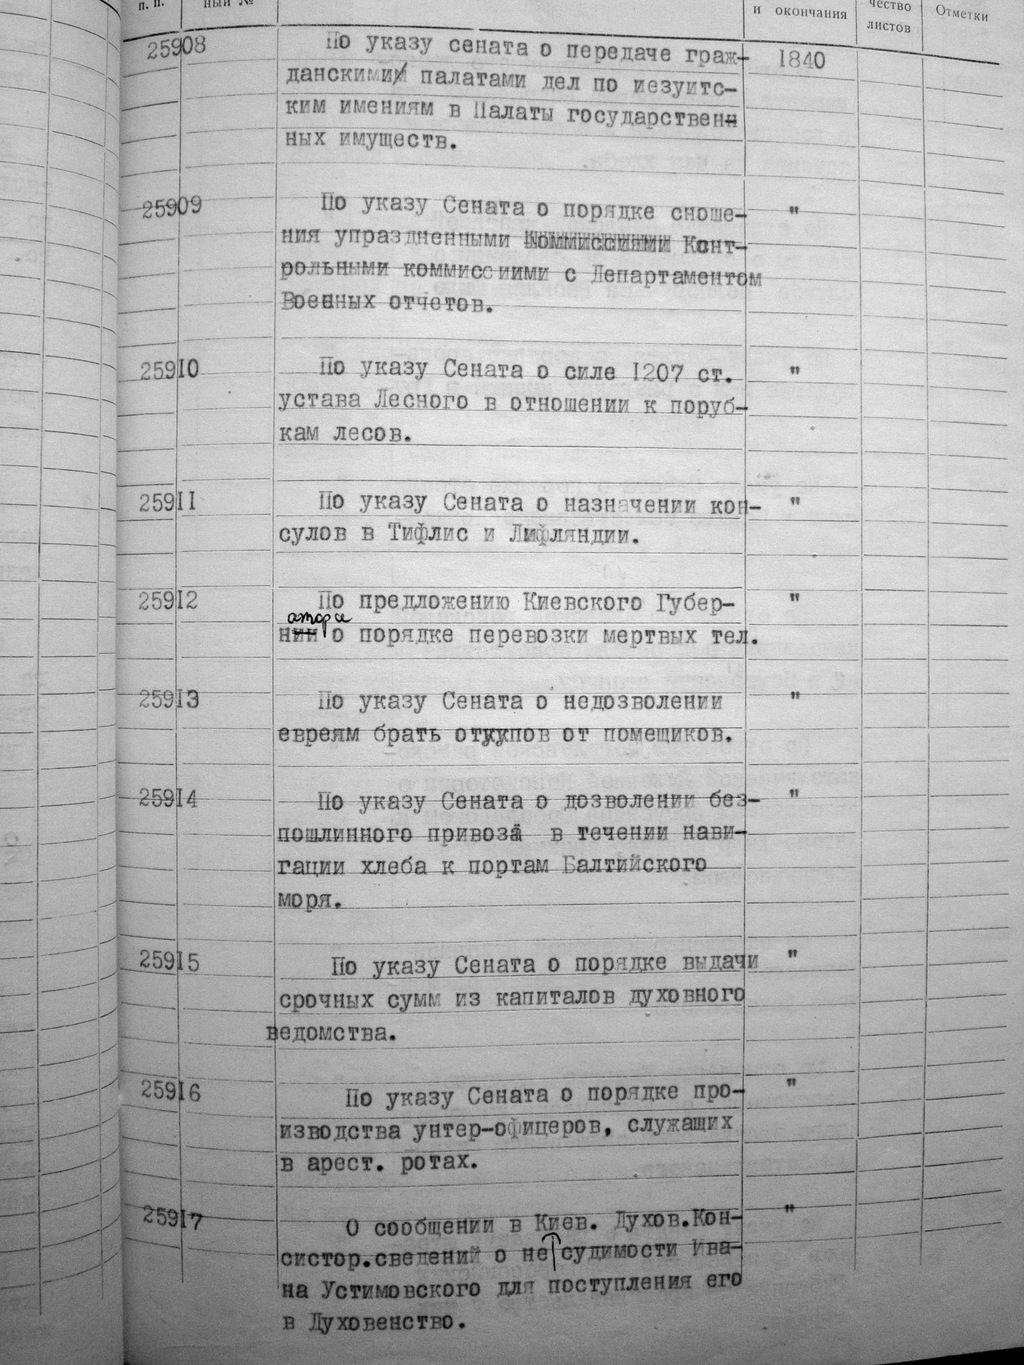 п. п. ный № и окончания чество листов Отметки
25908 По указу сената о передаче граж- 1840
данскими палатами дел по иезуитс-
ким имениям в Палаты государствен
ных имуществ.
25909 По указу Сената о порядке сноше- "
ния упраздненными Коммиссиями Конт-
рольными коммиссиими с Департаментом
Военных отчетов.
25910 По указу Сената о силе 1207 ст. "
устава Лесного в отношении к поруб-
кам лесов.
25911 По указу Сената о назначении кон- "
сулов в Тифлис и Лифляндии.
25912 По предложению Киевского Губер- "
атора
нии о порядке перевозки мертвых тел.
25913 По указу Сената о недозволении "
евреям брать откупов от помещиков.
25914 По указу Сената о дозволении без- "
пошлинного привоза в течении нави-
гации хлеба к портам Балтийского
моря.
25915 По указу Сената о порядке выдачи "
срочных сумм из капиталов духовного
ведомства.
25916 По указу Сената о порядке про- "
изводства унтер-офицеров, служащих
в арест. ротах.
25917 О сообщении в Киев. Духов.Кон- "
систор.сведений о не судимости Ива-
на Устимовского для поступления его
в Духовенство.